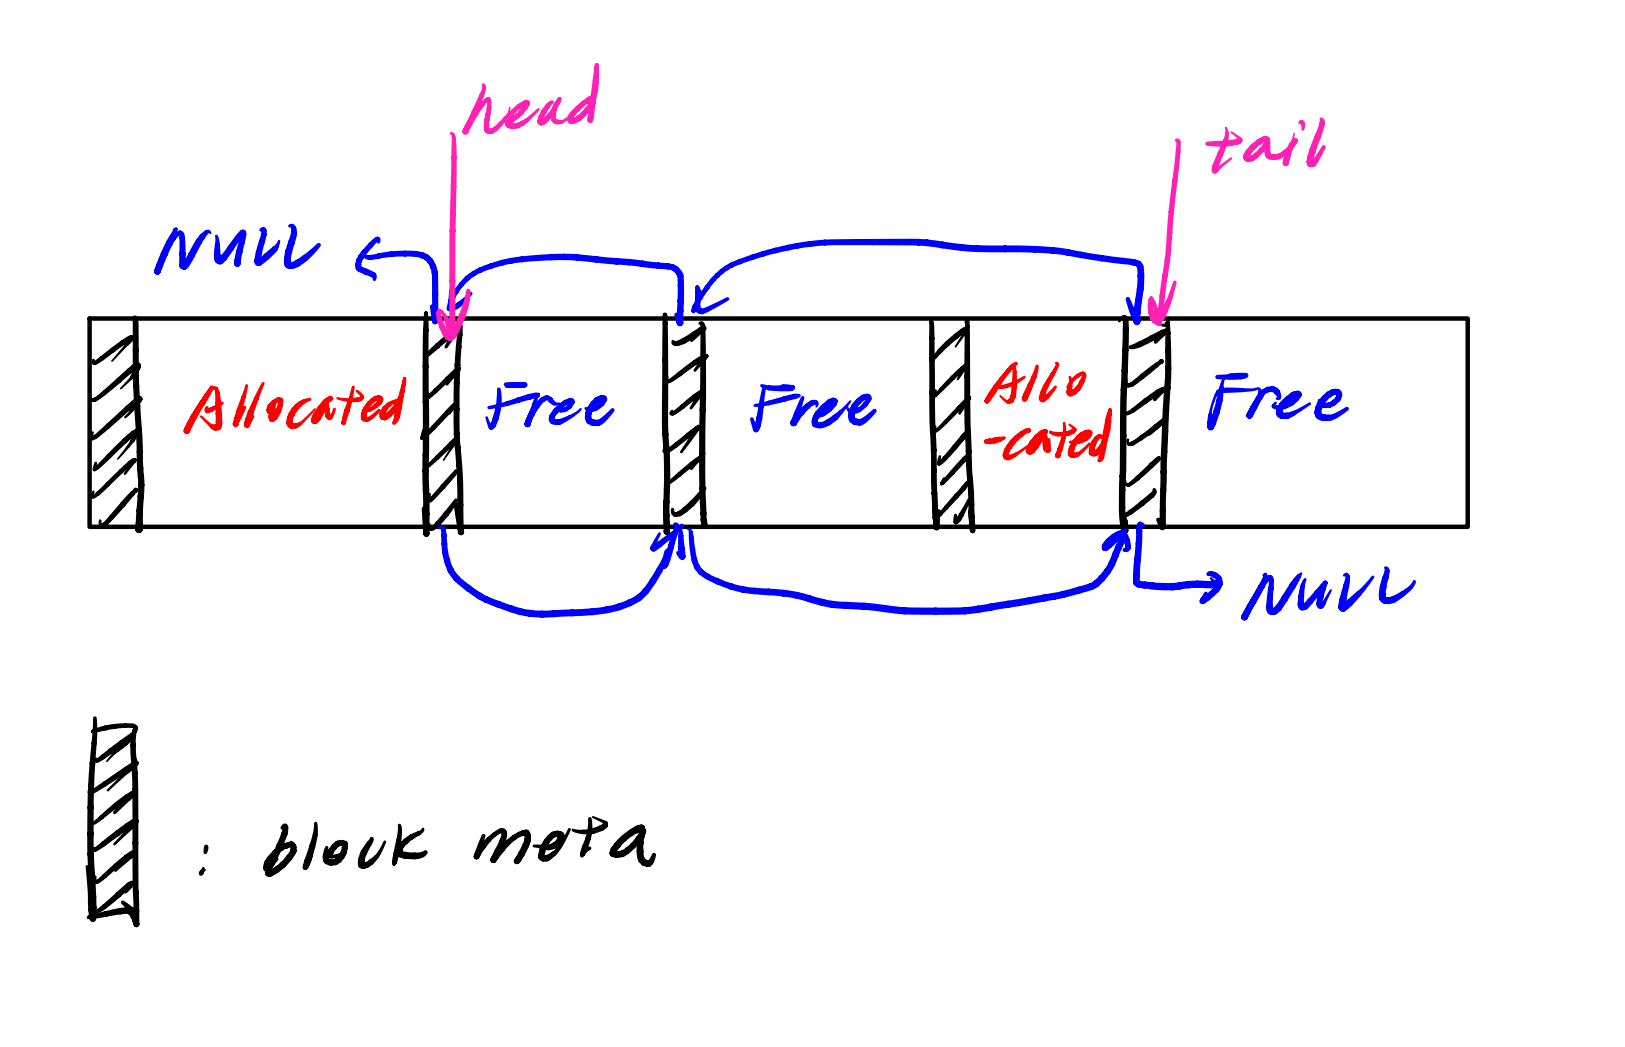 head
tail
NULL
Allocated
Free
Free
Allo
-cated
Free
NULL
: block meta